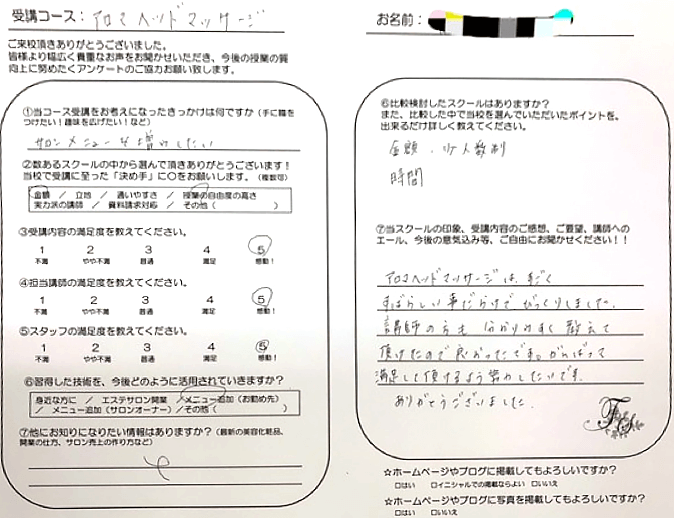 受講コース： アロマヘッドマッサージ
ご来校頂きありがとうございました。
皆様より幅広く貴重なお声をお聞かせいただき、今後の授業の質
向上に努めたくアンケートのご協力お願い致します。
①当コース受講をお考えになったきっかけは何ですか（手に職を
つけたい！趣味を広げたい！など）
サロンメニューを増やしたい
②数あるスクールの中から選んで頂きありがとうございます！
当校で受講に至った「決め手」に〇をお願いします。（複数可）
金額 ／ 立地 ／ 通いやすさ ／ 授業の自由度の高さ
実力派の講師 ／ 資料請求対応 ／ その他（ ）
③受講内容の満足度を教えてください。
1 2 3 4 5
不満 やや不満 普通 満足 感動！
④担当講師の満足度を教えてください。
1 2 3 4 5
不満 やや不満 普通 満足 感動！
⑤スタッフの満足度を教えてください。
1 2 3 4 5
不満 やや不満 普通 満足 感動！
⑥習得した技術を、今後どのように活用されていきますか？
身近な方に ／ エステサロン開業 ／ メニュー追加（お勤め先）
／ メニュー追加（サロンオーナー） ／その他（ ）
⑦他にお知りになりたい情報はありますか？（最新の美容化粧品、
開業の仕方、サロン売上の作り方など）
お名前：
⑥比較検討したスクールはありますか？
また、比較した中で当校を選んでいただいたポイントを。
出来るだけ詳しく教えてください。
金額・少人数制
時間
⑦当スクールの印象、受講内容のご感想、ご要望、講師への
エール、今後の意気込み等、ご自由にお聞かせください！！
アロマヘッドマッサージは、すごく
すばらしい事だらけでびっくりしました。
講師の方も 分かりやすく 教えて
頂けたので良かったです。がんばって
満足して頂けるよう努力したいです。
ありがとうございました。
☆ホームページやブログに掲載してもよろしいですか？
□はい □イニシャルでの掲載ならよい □いいえ
☆ホームページやブログに写真を掲載してもよろしいですか？
□はい □いいえ